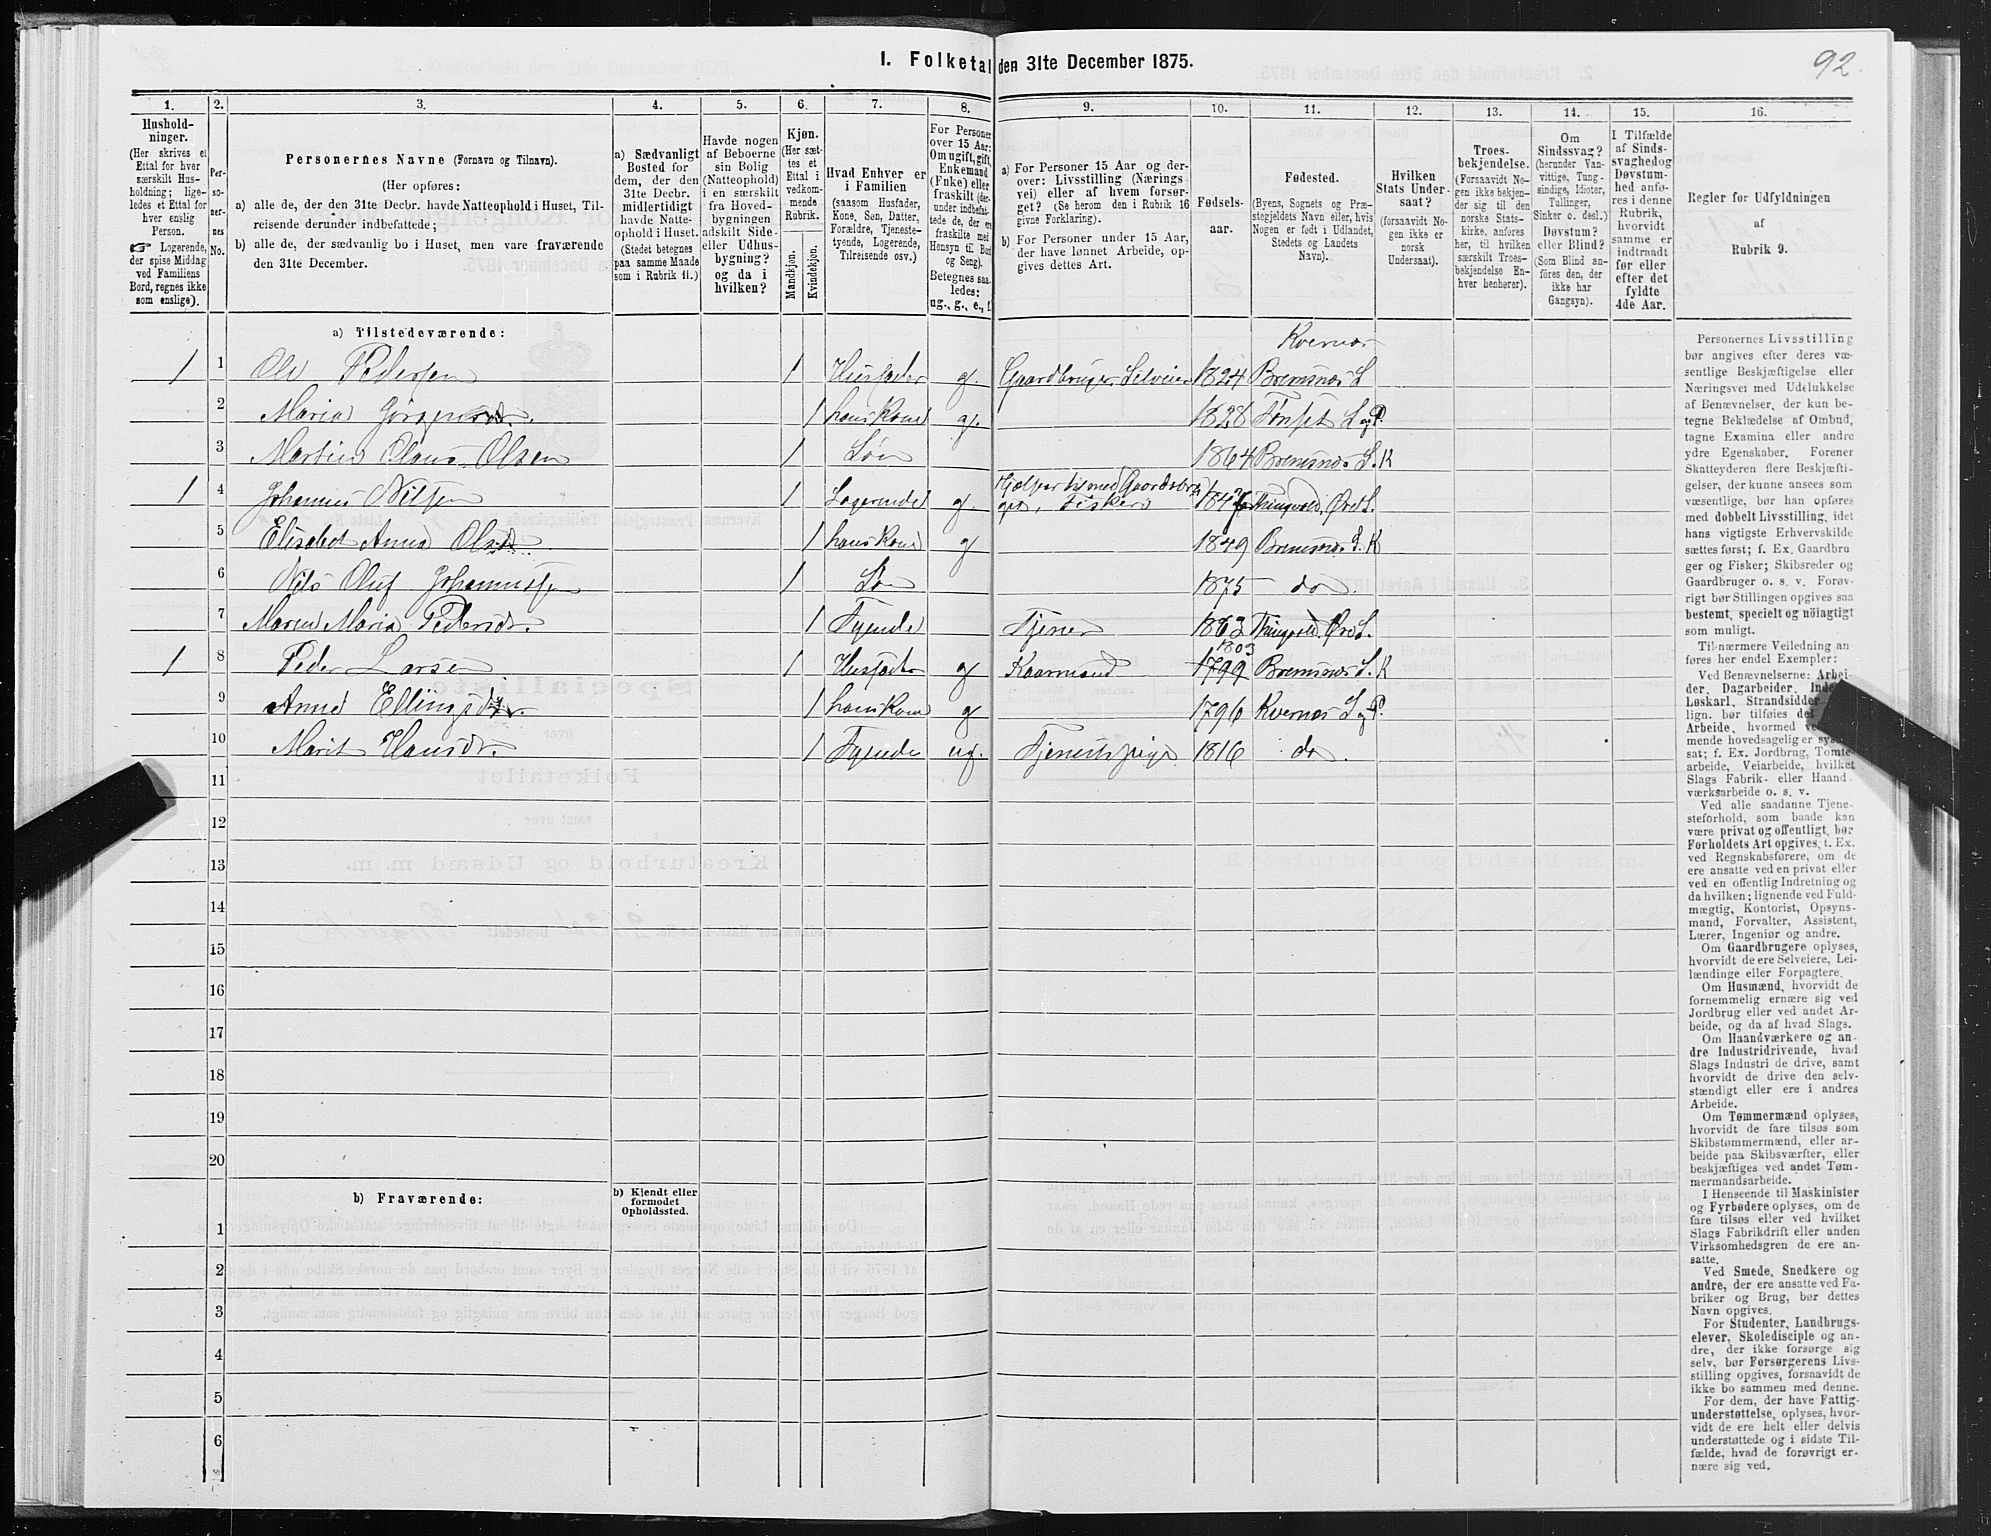 1. Folketal den 31te December 1875.
92.
1. 2. 3. 4. 5. 6. 7. 8. 9. 10. 11. 12. 13. 14. 15. 16.
Hushold-
ninger.
(Her skrives et
Ettal for hver
særskilt Hus-
holdning; lige-
ledes et Ettal for
hver enslig
Person.
☞ Logerende,
der spise Middag
ved Familiens
Bord, regnes ikke
som enslige).
Per-
so-
ner-
nes
No.
Personernes Navne (Fornavn og Tilnavn).
(Her opføres:
a) alle de, der den 31te Decbr. havde Natteophold i Huset, Til-
reisende derunder indbefattede;
b) alle de, der sædvanlig bo i Huset, men vare fraværende
den 31te December.
a) Sædvanligt
Bosted for
dem, der den
31te Decbr.
midlertidigt
havde Natte-
ophold i Huset.
(Stedet betegnes
paa samme Maade
som i Rubrik 11.)
Havde nogen
af Beboerne
sin Bolig
(Natteophold)
i en særskilt
fra Hoved-
bygningen
adskilt Side-
eller Udhus-
bygning?
og da i
hvilken?
Kjøn.
(Her sæt-
tes et
Ettal i
vedkom-
mende
Rubrik.
Mandkjøn.
Kvindekjøn.
Hvad Enhver er
i Familien
(saasom Husfader,
Kone, Søn, Datter,
Forældre, Tjeneste-
tyende, Logerende,
Tilreisende osv.)
For Personer
over 15 Aar:
Om ugift, gift,
Enkemand
(Enke) eller
fraskilt (der-
under indbefat-
tede de, der ere
fraskilte med
Hensyn til Bord
og Seng).
Betegnes saa-
ledes:
ug., g., e., f.
a) For Personer 15 Aar og der-
over: Livsstilling (Nærings-
vei) eller af hvem forsør-
get? (Se herom den i Rubrik 16
givne Forklaring).
b) For Personer under 15 Aar,
der have lønnet Arbeide, op-
gives dettes Art.
Fødsels-
aar.
Fødested.
(Byens, Sognets og Præ-
stegjeldets Navn eller, hvis
Nogen er født i Udlandet,
Stedets og Landets
Navn).
Hvilken
Stats Under-
saat?
(forsaavidt No-
gen ikke er
norsk
Undersaat).
Troes-
bekjendelse.
(Forsaavidt No-
gen ikke bekjen-
der sig til den
norske Stats-
kirke, anføres
her, til hvilken
særskilt Troes-
bekjendelse En-
hver henhører).
Om
Sindssvag?
(herunder Van-
vittige, Tung-
sindige, Idioter,
Tullinger,
Sinker o. desl.)
Døvstum?
eller Blind?
(Som Blind an-
føres den, der
ikke har
Gangsyn).
I Tilfælde
af Sinds-
svaghed og
Døvstum-
hed anfø-
res i denne
Rubrik,
hvorvidt
samme er
indtraadt
før eller
efter det
fyldte
4de Aar.
Regler for Udfyldningen
af
Rubrik 9.
a) Tilstedeværende:
Kvernes
1 1 Ole Pedersen 1 Husfader g. Gaardbruger, Selveier 1824 Bremsnæs S
2 Maria Jørgensdr. 1 hans Kone g. 1828 Tønset S og P.
3 Martin Olaus Olsen 1 Søn 1864 Bremsnæs S. K
1 4 Johannes Nilsen 1 Logerende g. Hjælper til med Gaardsbru
get, Fisker Thingvold, Øre S.
5 Elisabet Anna Olsdr. 1 hans Kone g 1849 Bremsnæs S. K
6 Nils Oluf Johannessen 1 Søn 1875 do.
7 Maren Maria Pedersdr. 1 Tyende Tjener 1863 Thingvold, Øre S.
1803
1 8 Peder Larsen 1 Husfader g Kaarmand 1799 Bremsnæs S. K
9 Anne Ellingsdr. 1 hans Kone g 1796 Kvernes S og P.
10 Marit Hansdr. 1 Tyende ug. Tjenestepige 1816 do.
11
12
13
14
15
16
17
18
19
20
b) Fraværende:
b) Kjendt eller
formodet
Opholdssted.
1
2
3
4
5
6
Personernes Livsstilling
bør angives efter deres væ-
sentlige Beskjæftigelse eller
Næringsvei med Udelukkelse
af Benævnelser, der kun be-
tegne Beklædelse af Ombud,
tagne Examina eller andre
ydre Egenskaber. Forener
Skatteyderen flere Beskjæfti-
gelser, der kunne ansees som
væsentlige, bør han opføres
med dobbelt Livsstilling, idet
hans vigtigste Erhvervskilde
sættes først; f. Ex. Gaardbru
ger og Fisker; Skibsreder og
Gaardbruger o. s. v. Forøv-
rigt bør Stillingen opgives saa
bestemt, specielt og nøiagtigt
som muligt.
Til nærmere Veiledning an
føres her endel Exempler:
Ved Benævnelserne: Arbei-
der, Dagarbeider,
Løskarl, Strandsidder
lign. bør tilføies det
Arbeide, hvormed
mende hovedsagelig er
sat; f. Ex. Jordbrug, Tomte-
arbeide, Veiarbeide, hvilket
Slags Fabrik- eller Haand-
værksarbeide o. s. v.
Ved alle saadanne Tjene-
steforhold, som baade kan
være privat og offentligt, bør
Forholdets Art opgives, f. Ex.
ved Regnskabsførere, om de
ere ansatte ved en privat eller
ved en offentlig Indretning og
da hvilken; lignende ved Fuld-
mægtig, Kontorist, Opsyns-
mand, Forvalter, Assistent,
Lærer, Ingeniør og andre.
Om Gaardbrugere oplyses,
hvorvidt de ere Selveiere, Lei-
lændinge eller Forpagtere.
Om Husmænd, hvorvidt de
fornemmelig ernære sig ved
Jordbrug eller ved andet Ar-
beide, og da af hvad Slags.
Om Haandværkere og an-
dre Industridrivende, hvad
Slags Industri de drive, samt
hvorvidt de drive den selv-
stændigt eller ere i andres
Arbeide.
Om Tømmermænd oplyses,
hvorvidt de fare tilsøs som
Skibstømmermænd, eller ar-
beide paa Skibsværfter, eller
beskjæftiges ved andet Tøm-
mermandsarbeide.
I Henseende til Maskinister
og Fyrbødere oplyses, om de
fare tilsøs eller ved hvilket
Slags Fabrikdrift eller anden
Virksomhedsgren de ere an-
satte.
Ved Smede, Snedkere og
andre, der ere ansatte ved Fa-
briker og Brug, bør dettes
Navn opgives.
For Studenter, Landbrugs-
elever, Skoledisciple og an-
dre, der ikke forsørge sig
selv, bør Forsørgerens Livs-
stilling opgives, forsaavidt de
ikke bo sammen med denne.
For dem, der have Fattig-
understøttelse, oplyses, hvor-
vidt de ere helt eller delvis
understøttede og i sidste Til-
fælde, hvad de forøvrigt er-
nære sig ved.